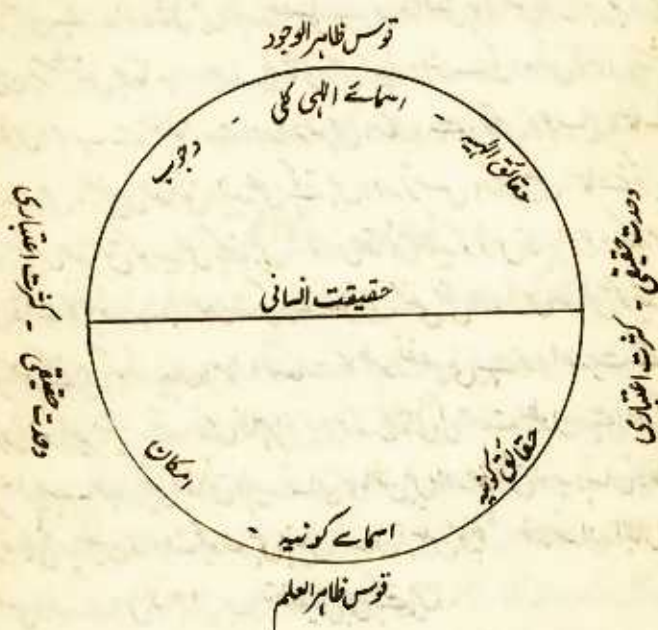 قوس ظاہر الوجود
اسمائے الٰہی کلی -
حقائق الٰہیہ -
وجوب
وحدت حقیقی - کثرت اعتباری
وحدت حقیقی - کثرت اعتباری
حقیقت انسانی
حقائق کونیہ
امکان
اسمائے کونیہ -
قوس ظاہر العلم